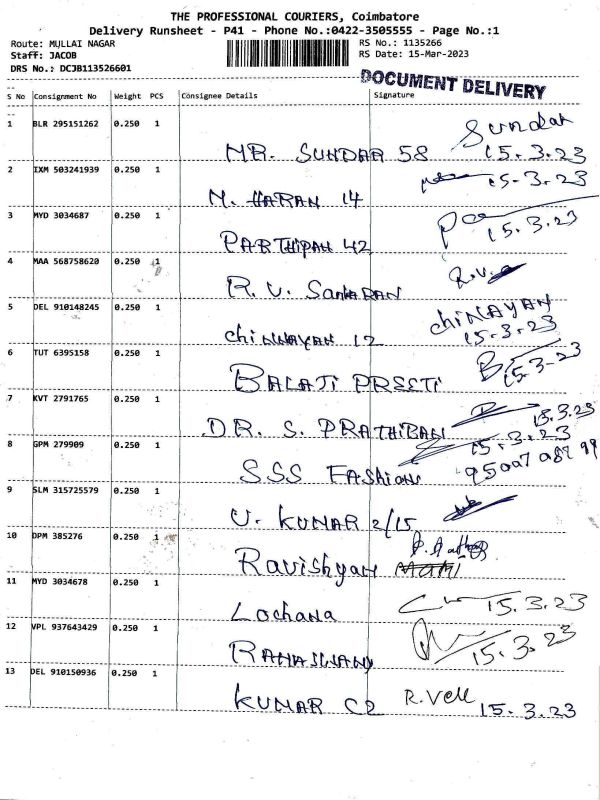 THE PROFESSIONAL COURIERS, Coimbatore
Delivery Runsheet - P41 - Phone No.:0422-3505555 - Page No.:1
Route: MULLAI NAGAR RS No.: 1135266
Staff: JACOB RS Date: 15-Mar-2023
DRS No.: DCJB113526601
DOCUMENT DELIVERY
S No Consignment No Weight PCS Consignee Details Signature
1 BLR 295151262 0.250 1 MR. SUNDAR 58 Sundar 15.3.23
2 IXM 503241939 0.250 1 M. HARAN 14 15.3.23
3 MYD 3034687 0.250 1 PARTHIPAN 42 15.3.23
4 MAA 568758620 0.250 1 R.V. SANKARAN R.V.
5 DEL 910148245 0.250 1 CHINNAYAN 12 CHINAYAN 15.3.23
6 TUT 6395158 0.250 1 BALAJI PREETI 15.3-23
7 KVT 2791765 0.250 1 DR. S. PRATHIBAN 15.3.23
8 GPM 279909 0.250 1 SSS FASHION 15.3.23
9 SLM 315725579 0.250 1 V. KUMAR 2/15
10 DPM 385276 0.250 1 Ravishyam
11 MYD 3034678 0.250 1 Lochana 15.3.23
12 VPL 937643429 0.250 1 RAMASWAMY 15.3.23
13 DEL 910150936 0.250 1 KUMAR C2 R.Vell 15.3.23